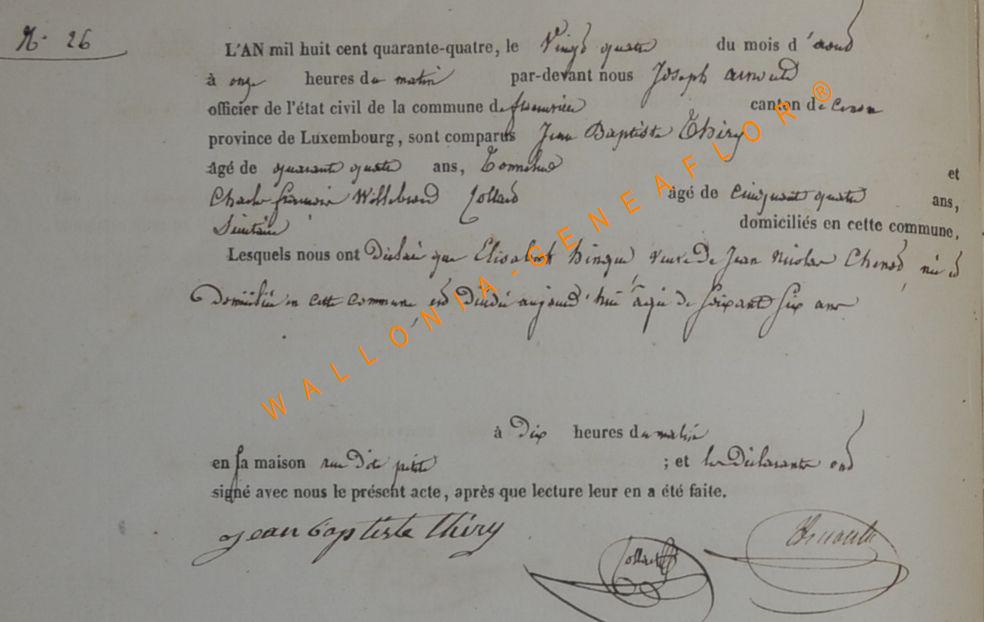 N° 26
L'AN mil huit cent quarante-quatre, le Vingt quatre du mois d'août
à onze heures du matin par-devant nous Joseph Arnould
officier de l'état civil de la commune de canton de
province de Luxembourg, sont comparus Jean Baptiste Thiry
âgé de quarant quatre ans, et
Charle francois Willebrord Collard âgé de Cinquant quatre ans,
domiciliés en cette commune,
Lesquels nous ont Déclaré que Elisabeth hinque veuve De Jean Nicolas née et
Domiciliée en cette Commune est aujourd'hui agée de Soixant Six ans
à Dix heures du matin
en sa maison rue ; et les Déclarants ont
signé avec nous le présent acte, après que lecture leur en a été faite.
jean baptiste thiry
Collard
Arnould
WALLONIA-GENEAFLOR®